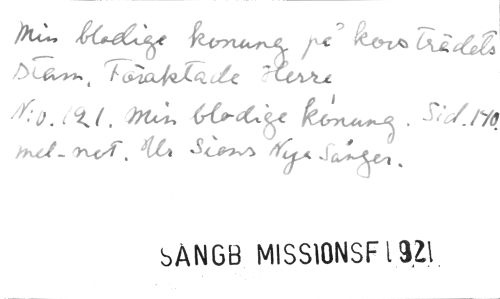 Min blodige konung på korsträdets
Stam, Föraktade Herre
N:o. 121. Min blodige konung. Sid. 140.
mel-not. Ur Sions Nya Sånger.
SÅNGB MISSIONSF 1921